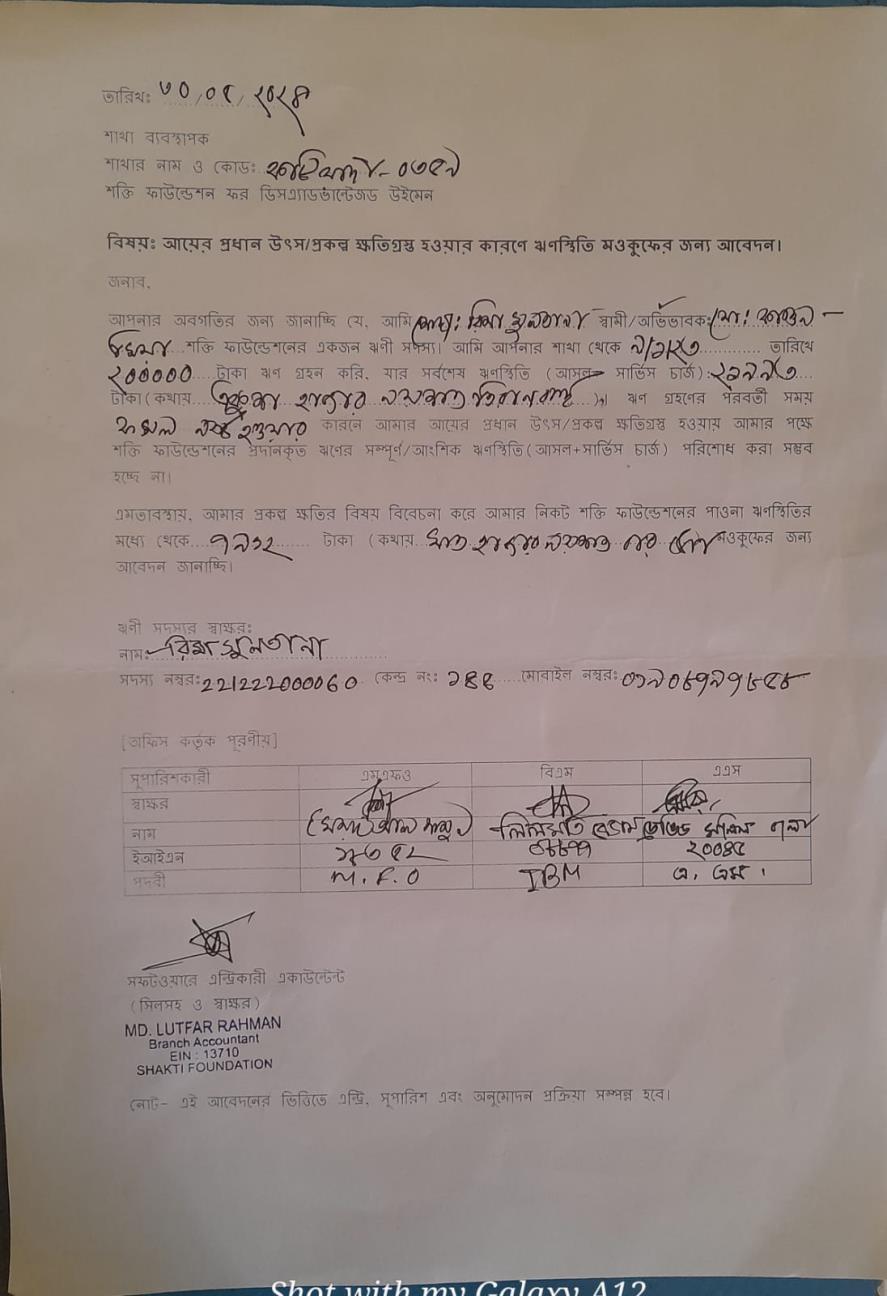 তারিখঃ ৩০/০৫/২০২৪
শাখা ব্যবস্থাপক
শাখার নাম ও কোডঃ
শক্তি ফাউন্ডেশন ফর ডিসএ্যাডভান্টেজড উইমেন
বিষয়ঃ আয়ের প্রধান উৎস/প্রকল্প ক্ষতিগ্রস্ত হওয়ার কারণে ঋণস্থিতি মওকুফের জন্য আবেদন।
জনাব,
আপনার অবগতির জন্য জানাচ্ছি যে, আমি মোছাঃ রিমা সুলতানা স্বামী/অভিভাবকঃ মোঃ
মিয়া শক্তি ফাউন্ডেশনের একজন ঋণী সদস্য। আমি আপনার শাখা থেকে তারিখে
২০০০০০ টাকা ঋণ গ্রহন করি, যার সর্বশেষ ঋণস্থিতি (আসল+ সার্ভিস চার্জ)ঃ ২১৯৯৩
টাকা(কথায় একুশ হাজার নয়শত তিরানব্বই)। ঋণ গ্রহণের পরবর্তী সময়
ফসল নষ্ট হওয়ার কারনে আমার আয়ের প্রধান উৎস/প্রকল্প ক্ষতিগ্রস্ত হওয়ায় আমার পক্ষে
শক্তি ফাউন্ডেশনের প্রদানকৃত ঋণের সম্পূর্ণ/আংশিক ঋণস্থিতি(আসল+সার্ভিস চার্জ) পরিশোধ করা সম্ভব
হচ্ছে না।
এমতাবস্থায়, আমার প্রকল্প ক্ষতির বিষয় বিবেচনা করে আমার নিকট শক্তি ফাউন্ডেশনের পাওনা ঋণস্থিতির
মধ্যে থেকে ৭৯১২ টাকা (কথায় সাত হাজার নয়শত বার মওকুফের জন্য
আবেদন জানাচ্ছি।
ঋণী সদস্যর স্বাক্ষরঃ
নামঃ রিমা সুলতানা
সদস্য নম্বরঃ 221222000060 কেন্দ্র নংঃ মোবাইল নম্বরঃ
[অফিস কর্তৃক পূরণীয়]
সুপারিশকারী এমএফও বিএম এএম
স্বাক্ষর
নাম
ইআইএন ২০০৪৫
পদবী M. F. O IBM এ. এম.
সফটওয়ারে এন্ট্রিকারী একাউন্টেন্ট
(সিলসহ ও স্বাক্ষর)
MD. LUTFAR RAHMAN
Branch Accountant
EIN : 13710
SHAKTI FOUNDATION
নোট- এই আবেদনের ভিত্তিতে এন্ট্রি, সুপারিশ এবং অনুমোদন প্রক্রিয়া সম্পন্ন হবে।
Shot with my Galaxy A12